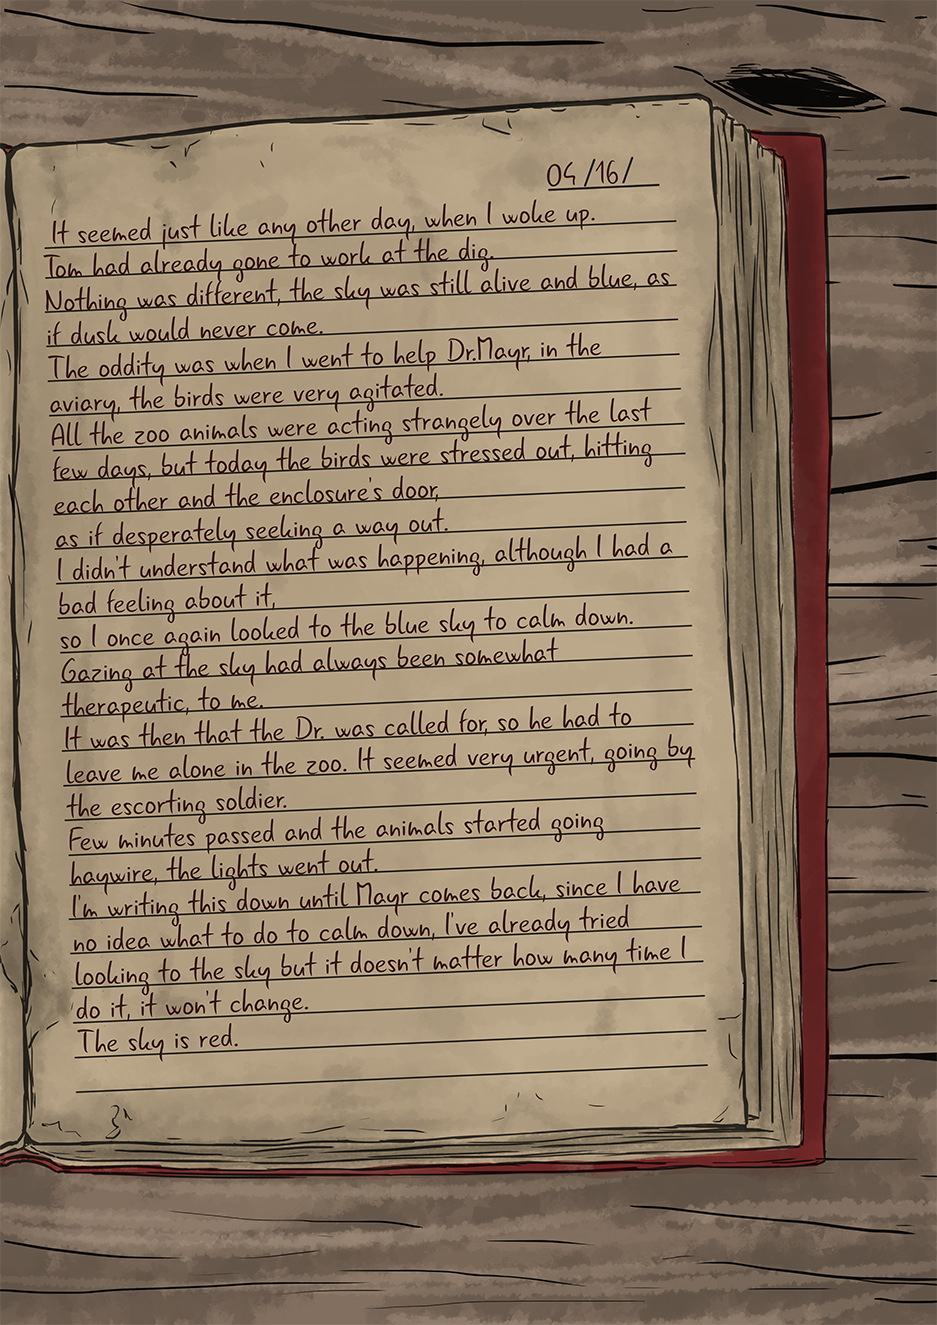 04/16/
It seemed just like any other day, when I woke up.
Tom had already gone to work at the dig.
Nothing was different, the sky was still alive and blue, as
if dusk would never come.
The oddity was when I went to help Dr.Mayr, in the
aviary, the birds were very agitated.
All the zoo animals were acting strangely over the last
few days, but today the birds were stressed out, hitting
each other and the enclosure's door,
as if desperately seeking a way out.
I didn't understand what was happening, although I had a
bad feeling about it,
so I once again looked to the blue sky to calm down.
Gazing at the sky had always been somewhat
therapeutic, to me.
It was then that the Dr. was called for, so he had to
leave me alone in the zoo. It seemed very urgent, going by
the escorting soldier.
Few minutes passed and the animals started going
haywire, the lights went out.
I'm writing this down until Mayr comes back, since I have
no idea what to do to calm down, I've already tried
looking to the sky but it doesn't matter how many time I
do it, it won't change.
The sky is red.